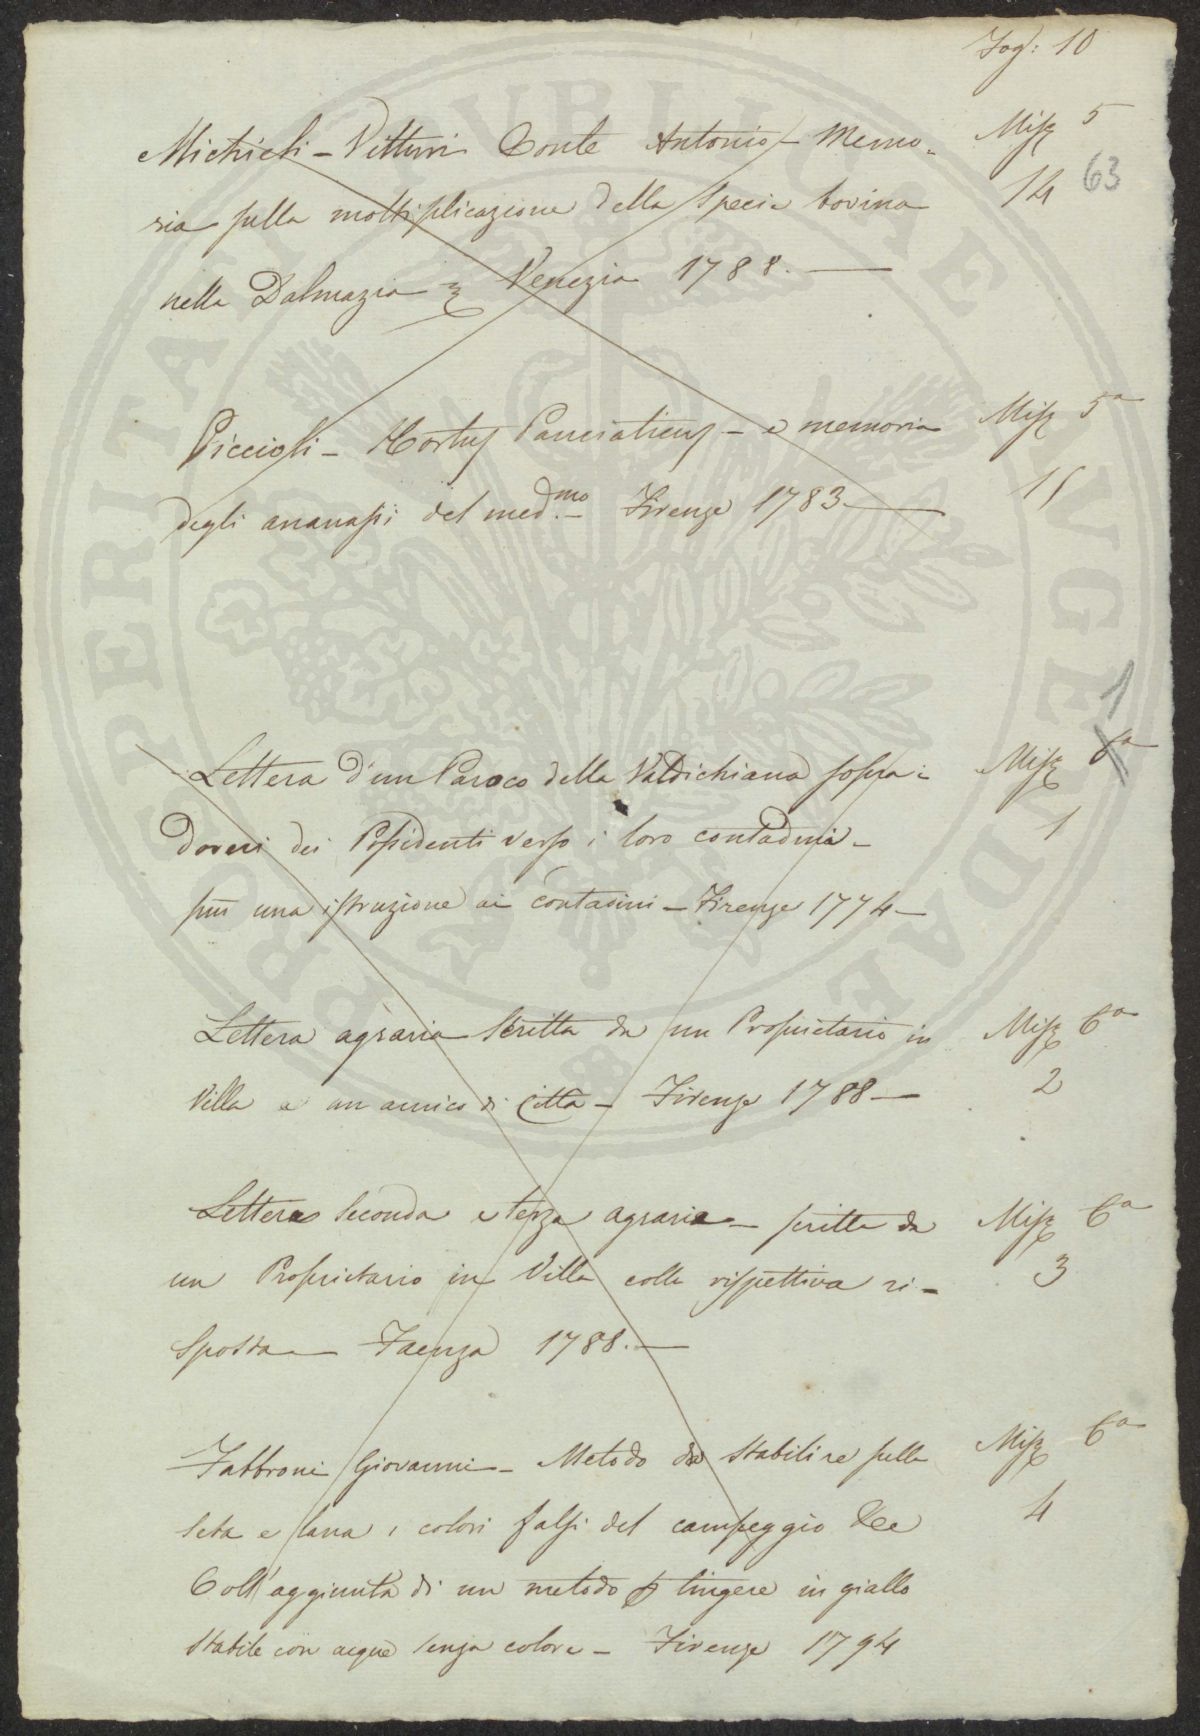 Fog: 10
Michieli - Vitturi Conte Antonio - Memo- Misc 5
ria sulla moltiplicazione della specie bovina 14 63
nella Dalmazia Venezia 1788. —
Piccioli - Hortus Panciaticus - e memoria Misc 5a
degli ananassi del med.mo Firenze 1783 — 15
Lettera d'un Paroco della Valdichiana sopra i Misc 6a 1
doveri dei Possidenti verso i loro contadini - 1
più una istruzione ai contadini - Firenze 1774 -
Lettera agraria scritta da un Proprietario in Misc 6a
Villa a un amico di Città - Firenze 1788 — 2
Lettere seconda e terza agrarie - scritte da Misc 6a
un Proprietario in Villa colla rispettiva ri- 3
sposta — Faenza 1788. —
Fabbroni Giovanni - Metodo da stabilire sulla Misc 6a
seta e lana i colori falsi del campeggio &ce 4
Coll'aggiunta di un metodo p tingere in giallo
stabile con acque senza colore - Firenze 1794
PROSPERITATI PVBLICAE AVGENDAE